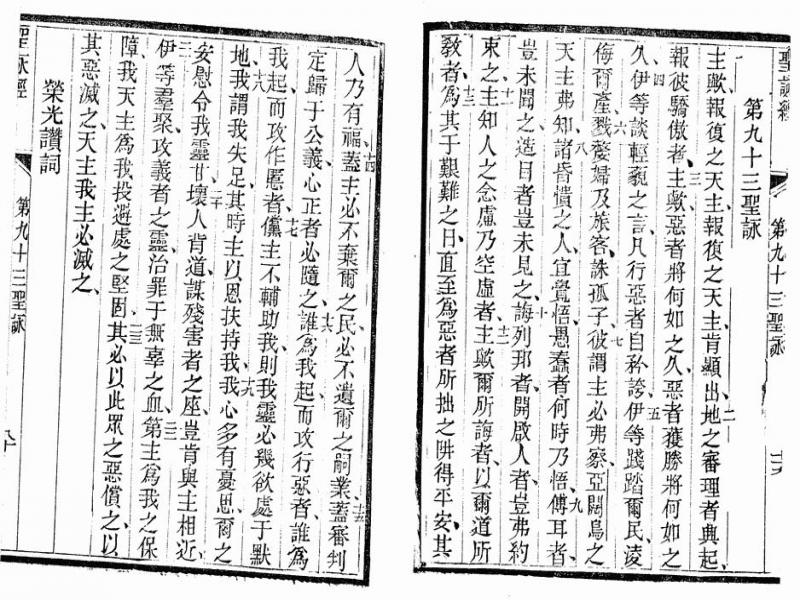 聖詠經 第九十三聖詠
第九十三聖詠
主歟、報復之天主、報復之天主、肯顯出、二地之審理者典起、
報彼驕傲者、三主歟、惡者將何如之久、惡者獲勝將何如之
久、四伊等談輕藐之言、凡行惡者自矜誇、五伊等踐踏爾民、淩
侮爾產、六戮嫠婦及旅客、誅孤子、七彼謂主必弗察、亞闊烏之
天主弗知、八諸昏憒之人、宜覺悟、愚蠢者何時乃悟、九傅耳者、
豈未聞之、造目者豈未見之、十誨列邦者、開啟人者、豈弗約
束之、十一主知人之念慮、乃空虛者、十二主歟、爾所誨者、以爾道所
教者、十三為其于艱難之日、直至為惡者所拙之阱、得平安、其
人乃有福、十四蓋主必不棄爾之民、必不遺爾之嗣業、十五蓋審判
定歸于公義、心正者必隨之、十六誰為我起而攻行惡者、誰為
我起而攻作慝者、十七儻主不輔助我、則我靈必幾欲處于默
地、十八我謂我失足、其時主以恩扶持我、十九我心多有憂思、爾之
安慰令我靈甘、二十壞人肯道謀殘害者之座、豈肯與主相近、
伊等羣聚攻義者之靈、治罪于無辜之血、二二第主為我之保
障、我天主為我投避處之堅固、二三其必以此眾之惡償之、以
其惡滅之、天主我主必滅之、
榮光讚詞
聖詠經 第九十三聖詠